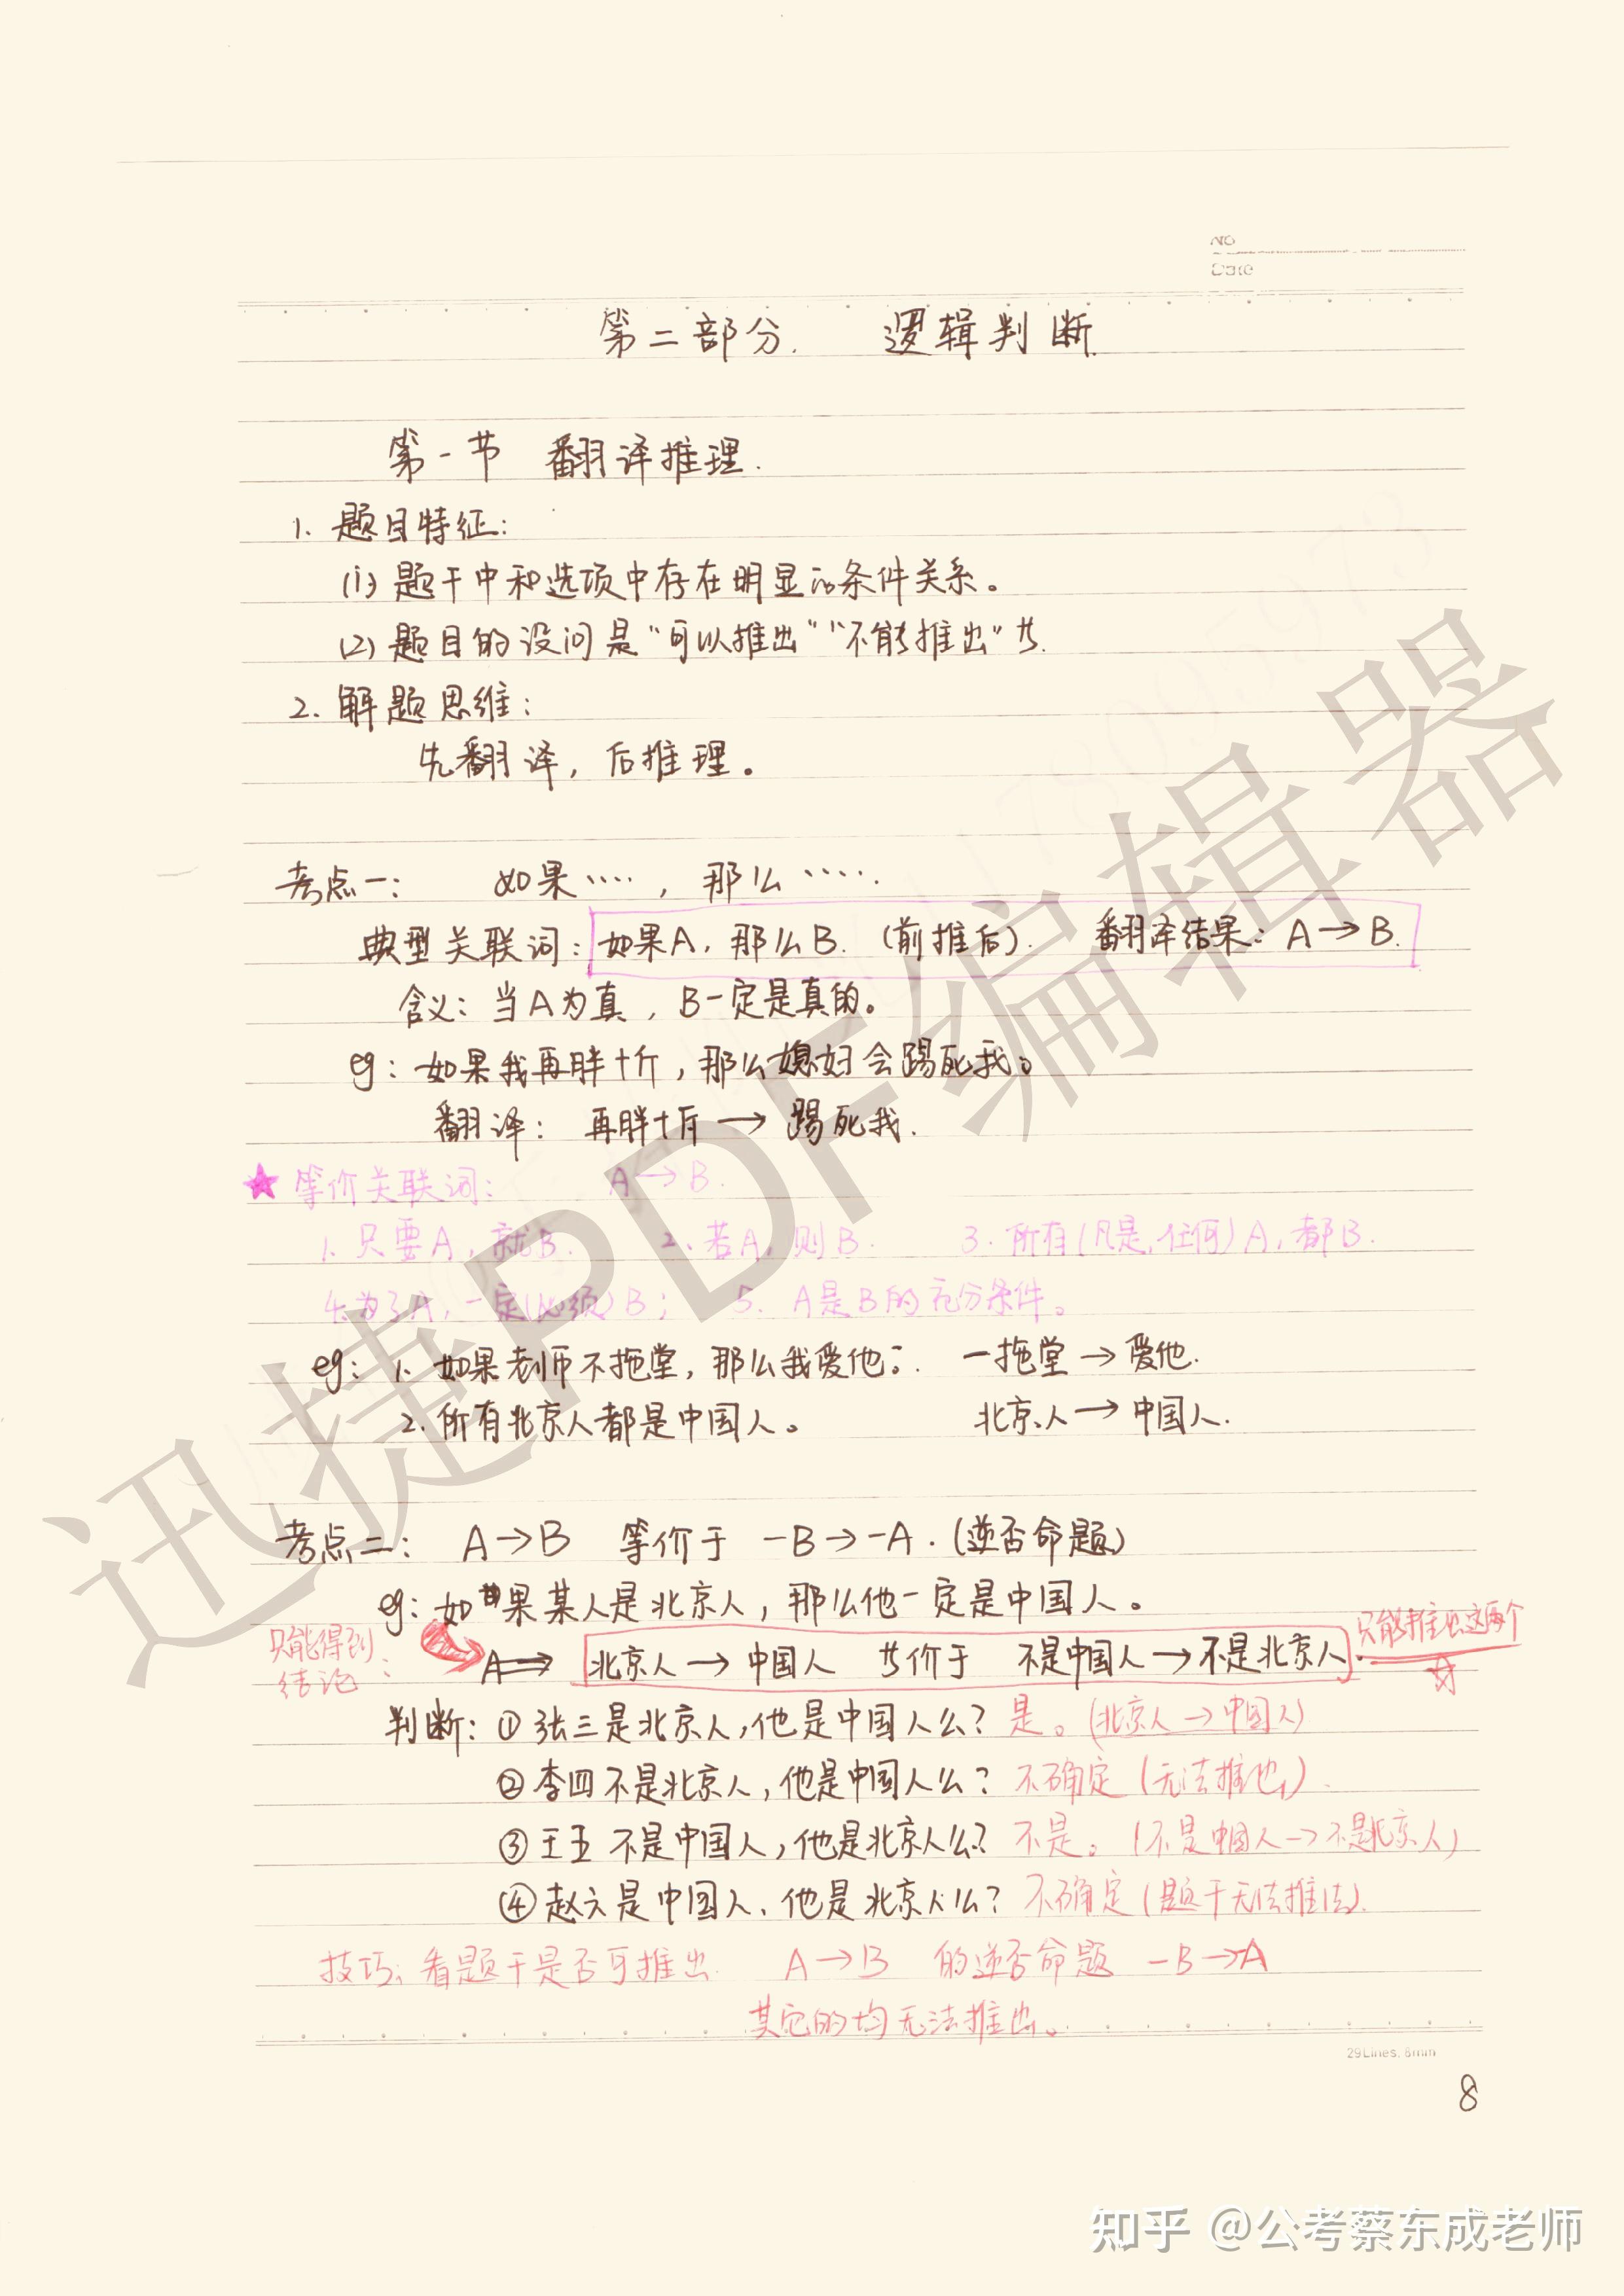 No
Date
第二部分. 逻辑判断.
第一节 翻译推理.
1. 题目特征:
(1) 题干中和选项中存在明显的条件关系。
(2) 题目的设问是"可以推出""不能推出"等.
2. 解题思维:
先翻译, 后推理。
考点一: 如果····, 那么·····.
典型关联词: 如果A, 那么B. (前推后). 翻译结果: A→B.
含义: 当A为真, B一定是真的。
eg: 如果我再胖十斤, 那么媳妇会踢死我。
翻译: 再胖十斤→踢死我.
★等价关联词: A→B.
1. 只要A, 就B. 2. 若A, 则B. 3. 所有(凡是, 任何)A, 都B.
4. 为了A, 一定(必须)B; 5. A是B的充分条件。
eg: 1. 如果老师不拖堂, 那么我爱他. -拖堂→爱他.
2. 所有北京人都是中国人。 北京人→中国人.
考点二: A→B 等价于 -B→-A. (逆否命题)
eg: 如果某人是北京人, 那么他一定是中国人。
只能得到
结论:
A⟹ 北京人→中国人 等价于 不是中国人→不是北京人. 只能推出这两个
☆
判断: ①张三是北京人, 他是中国人么? 是。(北京人→中国人)
②李四不是北京人, 他是中国人么? 不确定(无法推出).
③王五不是中国人, 他是北京人么? 不是。(不是中国人→不是北京人)
④赵六是中国人, 他是北京人么? 不确定(题干无法推法).
技巧: 看题干是否可推出 A→B 的逆否命题 -B→A
其它的均无法推出。
29Lines, 8mm
8
迅捷PDF编辑器
知乎 @公考蔡东成老师